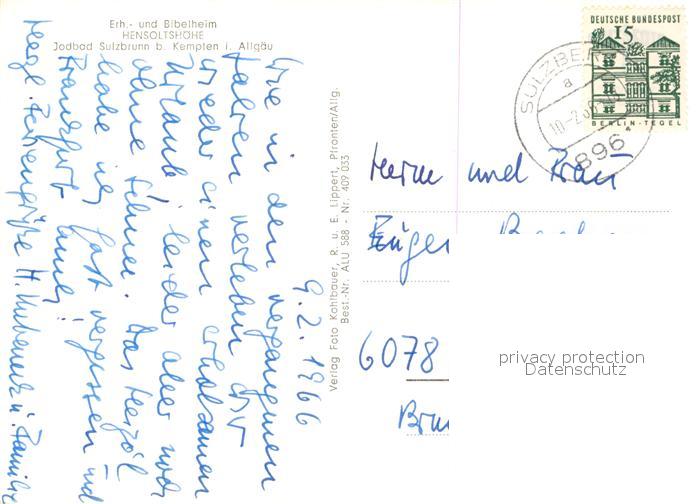 Erh.- und Bibelheim
HENSOLTSHÖHE
Jodbad Sulzbrunn b. Kempten i. Allgäu
9.2.1966
Wie in den vergangenen
Jahren verleben wir
wieder einen erholsamen
Urlaub, leider aber noch
ohne Schnee. Das
habe ich fast vergessen und
Frankfurt
Herzl. Feriengrüße H. u. Familie
Verlag Foto Kohlbauer, R. u. E. Lippert, Pfronten/Allg.
Best.-Nr. ALU 588 - Nr. 409 033
DEUTSCHE BUNDESPOST
15
BERLIN-TEGEL
SULZBE
a
896
Herrn und Frau
Eugen
6078
privacy protection
Datenschutz